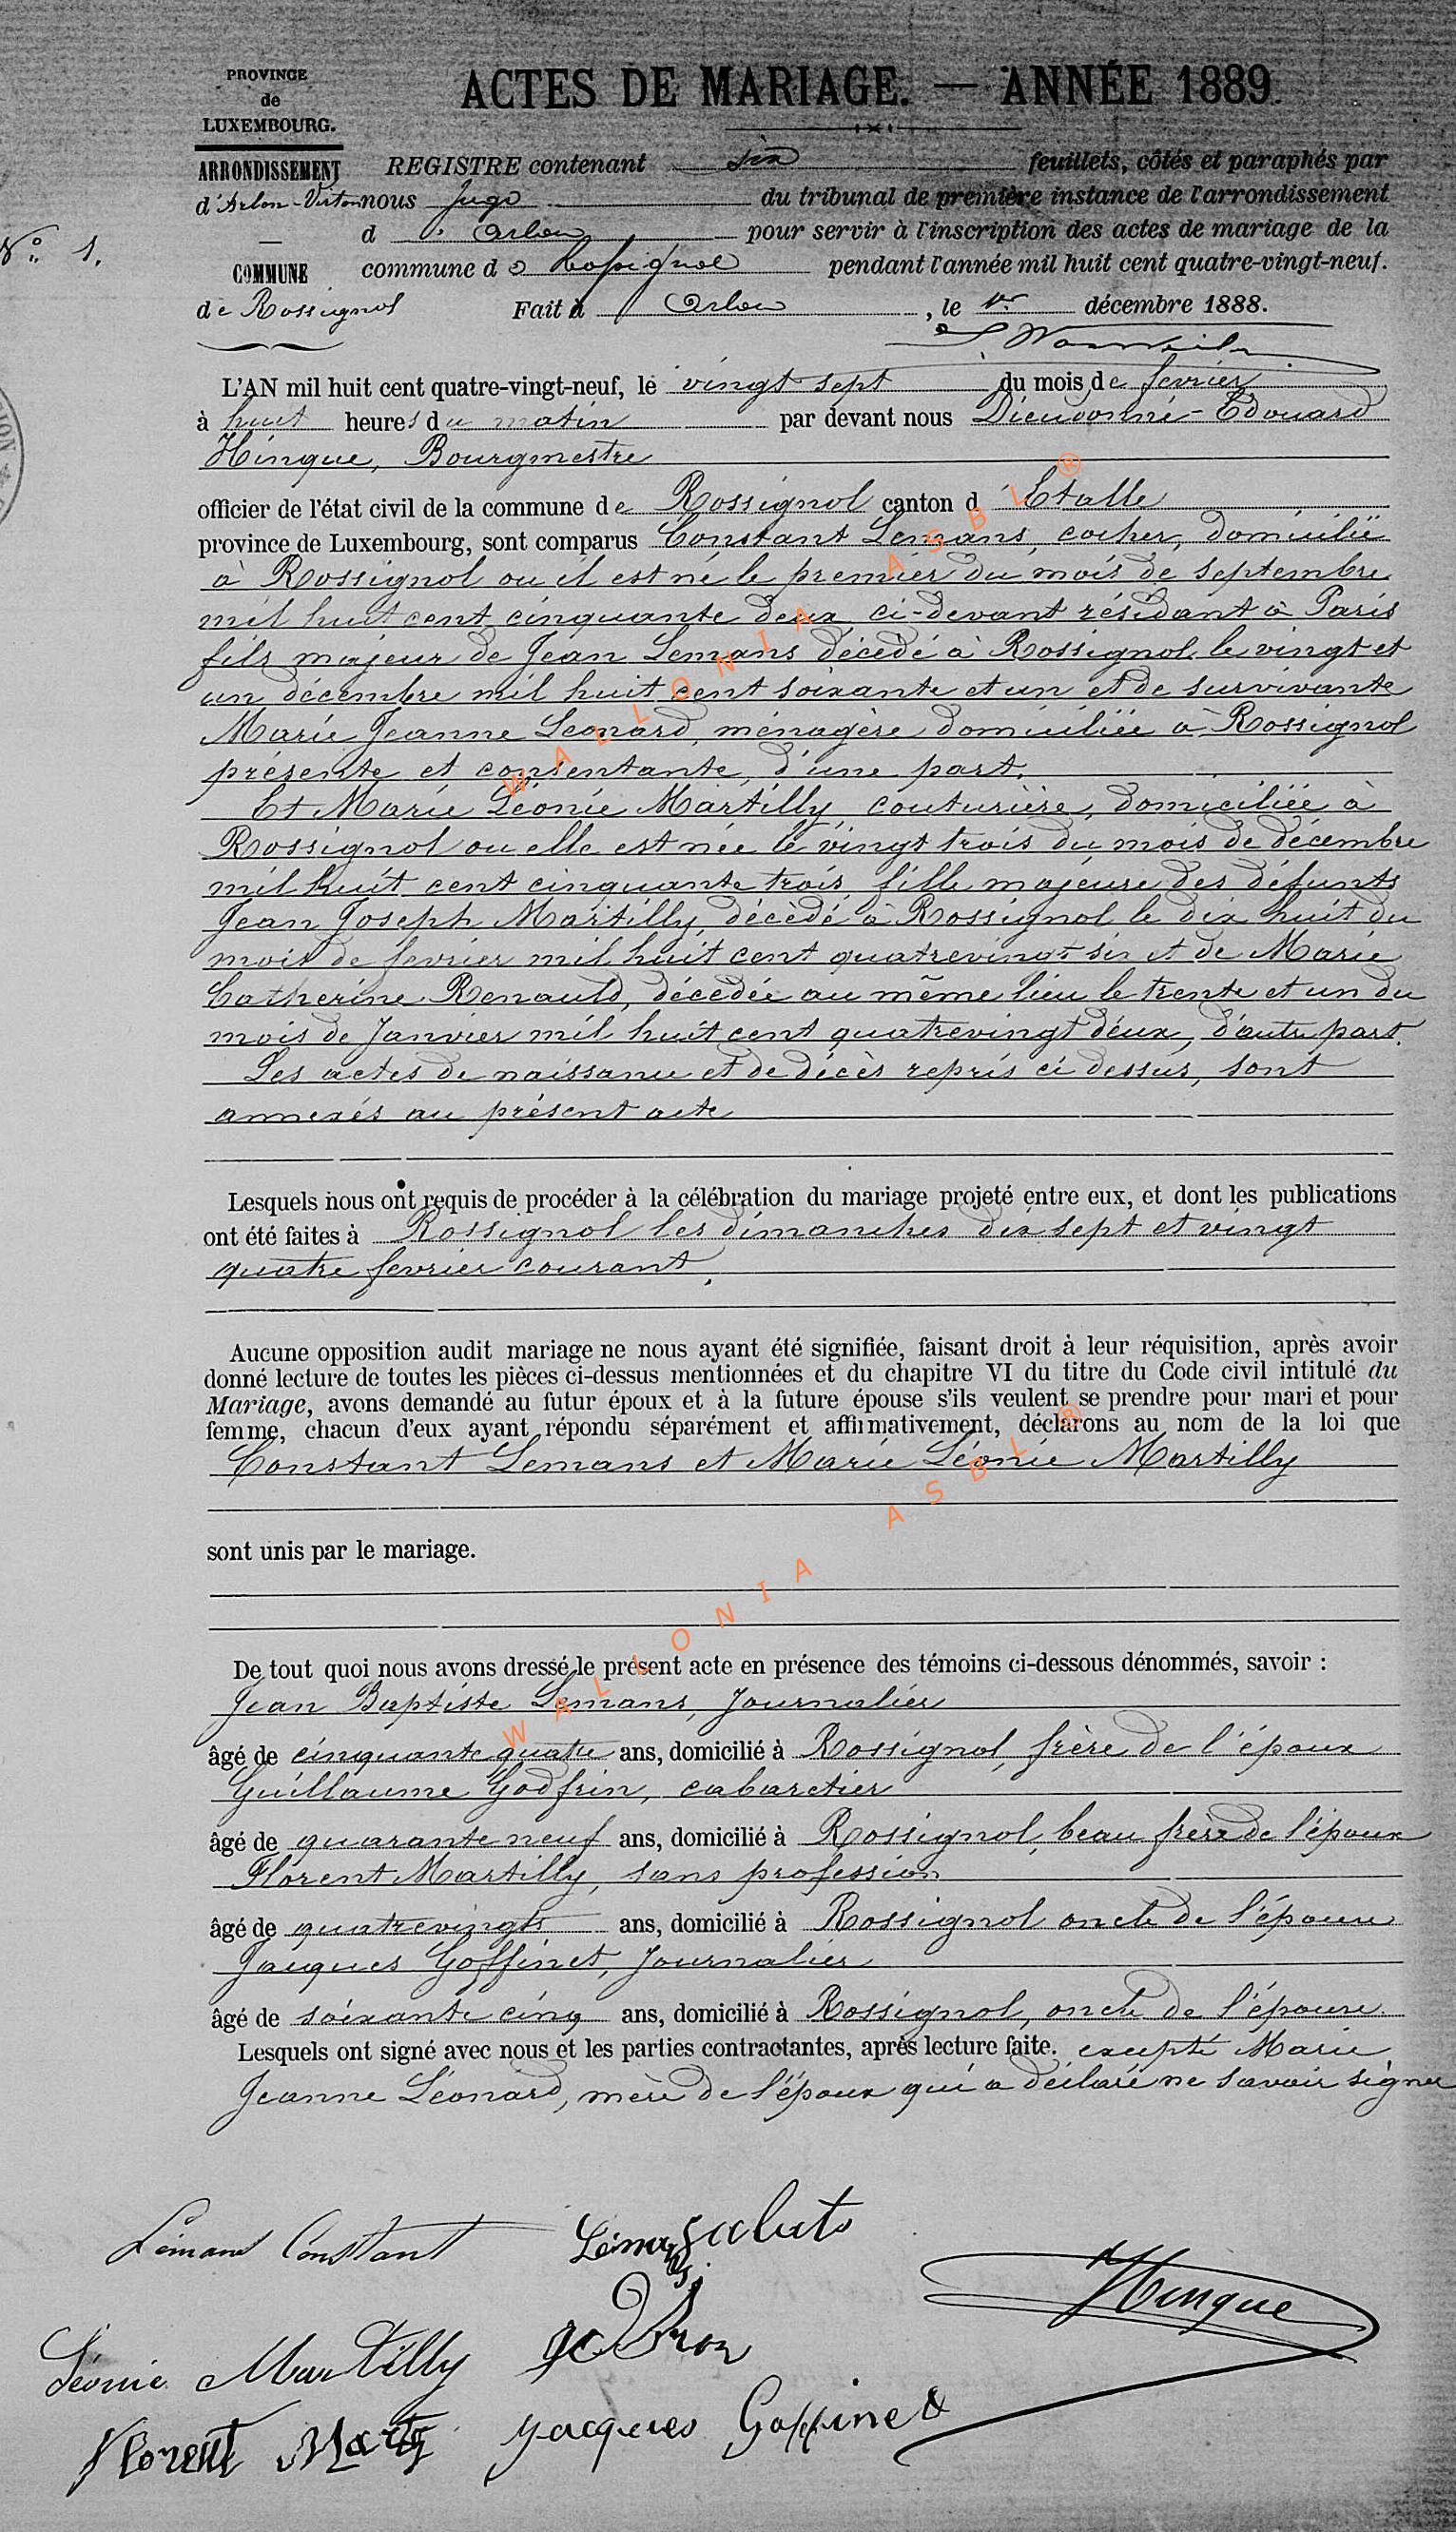 PROVINCE
de
LUXEMBOURG.
ACTES DE MARIAGE. — ANNÉE 1889.
ARRONDISSEMENT
d'Arlon-Virton
N° 1.
COMMUNE
de Rossignol
REGISTRE contenant six feuillets, côtés et paraphés par
nous Juge du tribunal de première instance de l'arrondissement
d'Arlon pour servir à l'inscription des actes de mariage de la
commune de Rossignol pendant l'année mil huit cent quatre-vingt-neuf.
Fait à Arlon, le 1er décembre 1888.
L'AN mil huit cent quatre-vingt-neuf, le vingt sept du mois de fevrier
à huit heures du matin par devant nous Dieudonné-Edouard
Hinque, Bourgmestre
officier de l'état civil de la commune de Rossignol canton d'Etalle
province de Luxembourg, sont comparus Constant Lemans, cocher, domicilié
à Rossignol ou il est né le premier du mois de septembre
mil huit cent cinquante deux, ci-devant résidant à Paris
fils majeur de Jean Lemans décédé à Rossignol le vingt et
un décembre mil huit cent soixante et un et de survivante
Marie Jeanne Leonard, ménagère domiciliée à Rossignol
présente et consentante, d'une part.
Et Marie Léonie Martilly, couturière, domiciliée à
Rossignol ou elle est née le vingt trois du mois de décembre
mil huit cent cinquante trois, fille majeure des défunts
Jean Joseph Martilly, décèdé à Rossignol le dix huit du
mois de fevrier mil huit cent quatrevingt six et de Marie
Catherine Renauld, décedée au même lieu le trente et un du
mois de Janvier mil huit cent quatrevingt deux, d'autre part.
Les actes de naissance et de décès repris ci dessus, sont
annexés au présent acte
Lesquels nous ont requis de procéder à la célébration du mariage projeté entre eux, et dont les publications
ont été faites à Rossignol les dimanches dix sept et vingt
quatre fevrier courant.
Aucune opposition audit mariage ne nous ayant été signifiée, faisant droit à leur réquisition, après avoir
donné lecture de toutes les pièces ci-dessus mentionnées et du chapitre VI du titre du Code civil intitulé du
Mariage, avons demandé au futur époux et à la future épouse s'ils veulent se prendre pour mari et pour
femme, chacun d'eux ayant répondu séparément et affirmativement, déclarons au nom de la loi que
Constant Lemans et Marie Léonie Martilly
sont unis par le mariage.
De tout quoi nous avons dressé le présent acte en présence des témoins ci-dessous dénommés, savoir :
Jean Baptiste Lemans, Journalier
âgé de cinquante quatre ans, domicilié à Rossignol, frère de l'époux
Guillaume Godfrin, cabaretier
âgé de quarante neuf ans, domicilié à Rossignol, beau frère de l'époux
Florent Martilly, sans profession
âgé de quatrevingts ans, domicilié à Rossignol oncle de l'épouse
Jacques Goffinet, Journalier
âgé de soixante cinq ans, domicilié à Rossignol, oncle de l'épouse
Lesquels ont signé avec nous et les parties contractantes, après lecture faite. excepté Marie
Jeanne Léonard, mère de l'époux qui a déclaré ne savoir signer
Lémans Constant
Hinque
Léonie Martilly
Florent
Jacques Goffinet
WALLONIA ASBL ®
WALLONIA ASBL ®